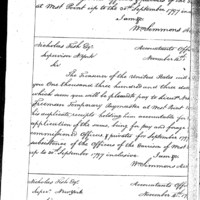 at West Point up to the 30th September 1797 in
I am &c
Wm Simmons
Nicholas Fish Esqr
Accountants Offi
Supervisor N York
November
Sir
The Treasurer of the United States will
you one thousand three hundred and
which sum you will be pleased pay to
Freeman Temporary Paymaster at West Point
his duplicate receipts holding him accountable for
application of the same, being for pay and forage
commissioned Officers & privates for September 179
subsistence of the Officers of the Garrison of West
up to 30th September 1797 inclusive
I am &c
Wm Simmons
Nicholas Fish Esqr
Accountants
Supr New York
November
Sir